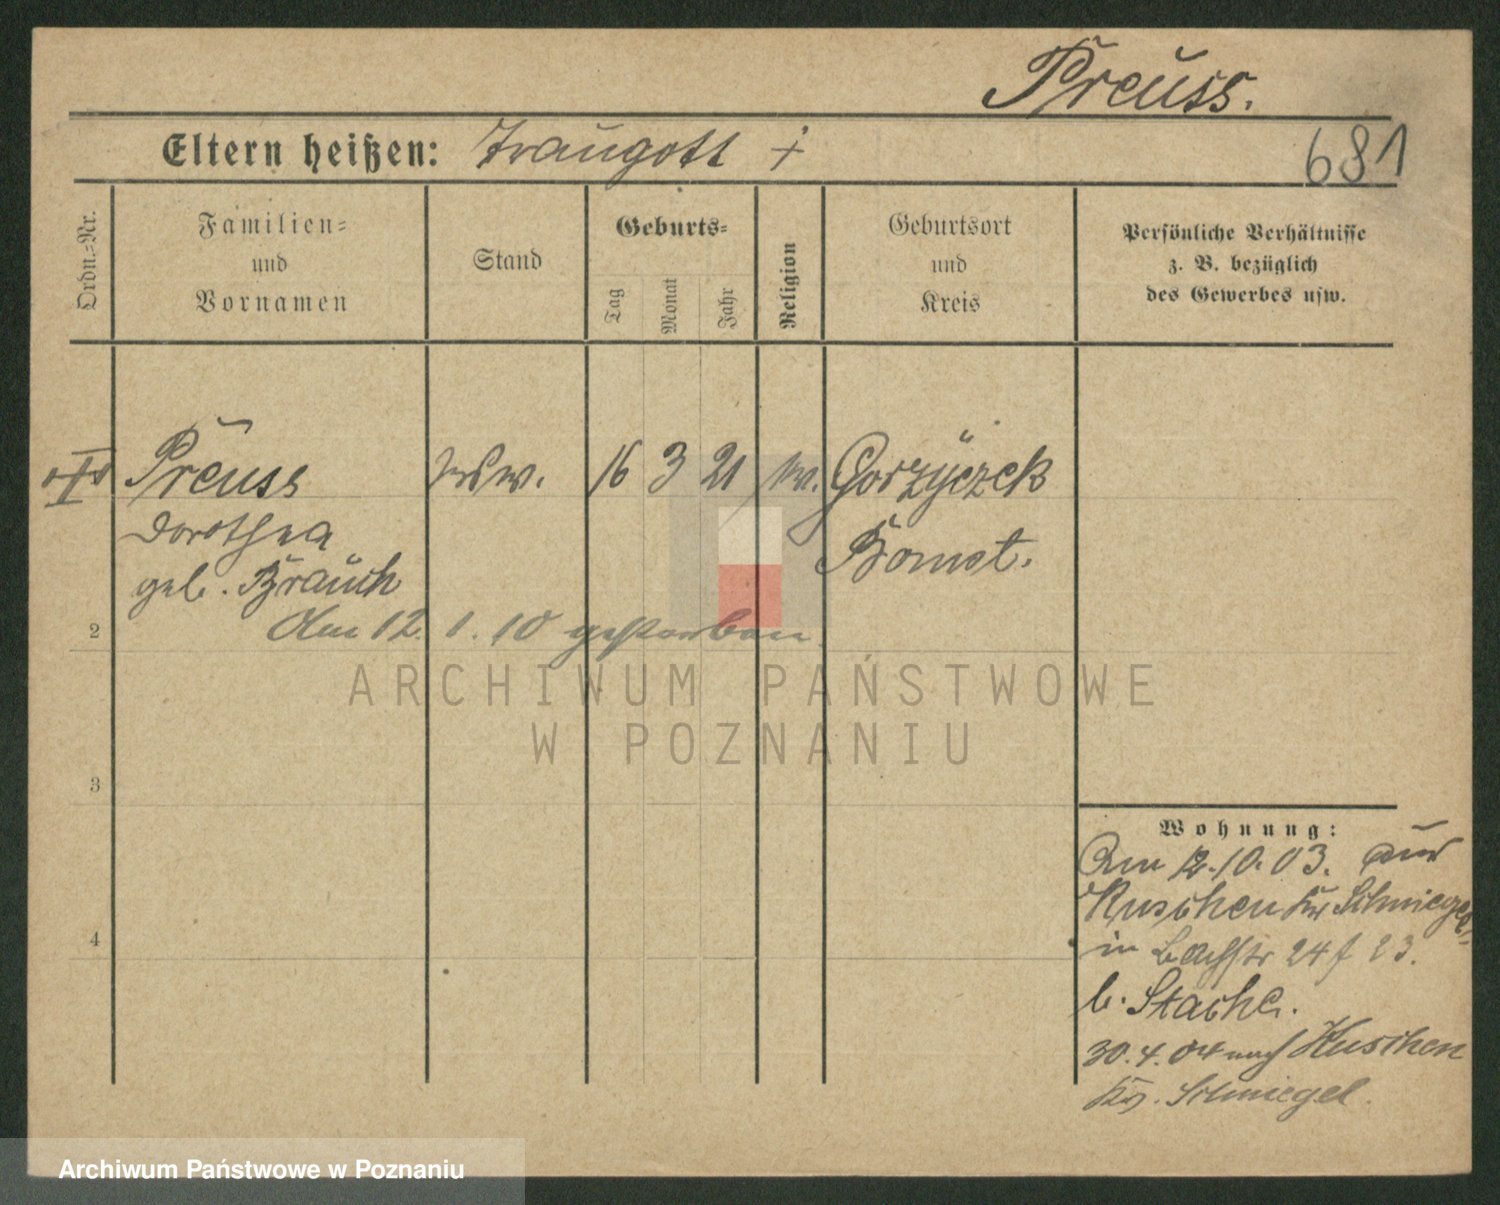 Preuss.
Eltern heißen: Traugott +
681
Ordn.-Nr.
Familien-
und
Vornamen
Stand
Geburts-
Tag
Monat
Jahr
Religion
Geburtsort
und
Kreis
Persönliche Verhältnisse
z. B. bezüglich
des Gewerbes usw.
Preuss
16 3 21
Gorzyczek
Dorothea
Bomst.
geb. Brauch
Am 12. 1. 10 gestorben
2
3
4
Wohnung:
Am 12.10.03. aus
Kuschen Kr Schmiegel
in Bachstr 24 f 23.
b. Stache.
30.4.04 nach Kuschen
Kr. Schmiegel.
ARCHIWUM PAŃSTWOWE
W POZNANIU
Archiwum Państwowe w Poznaniu